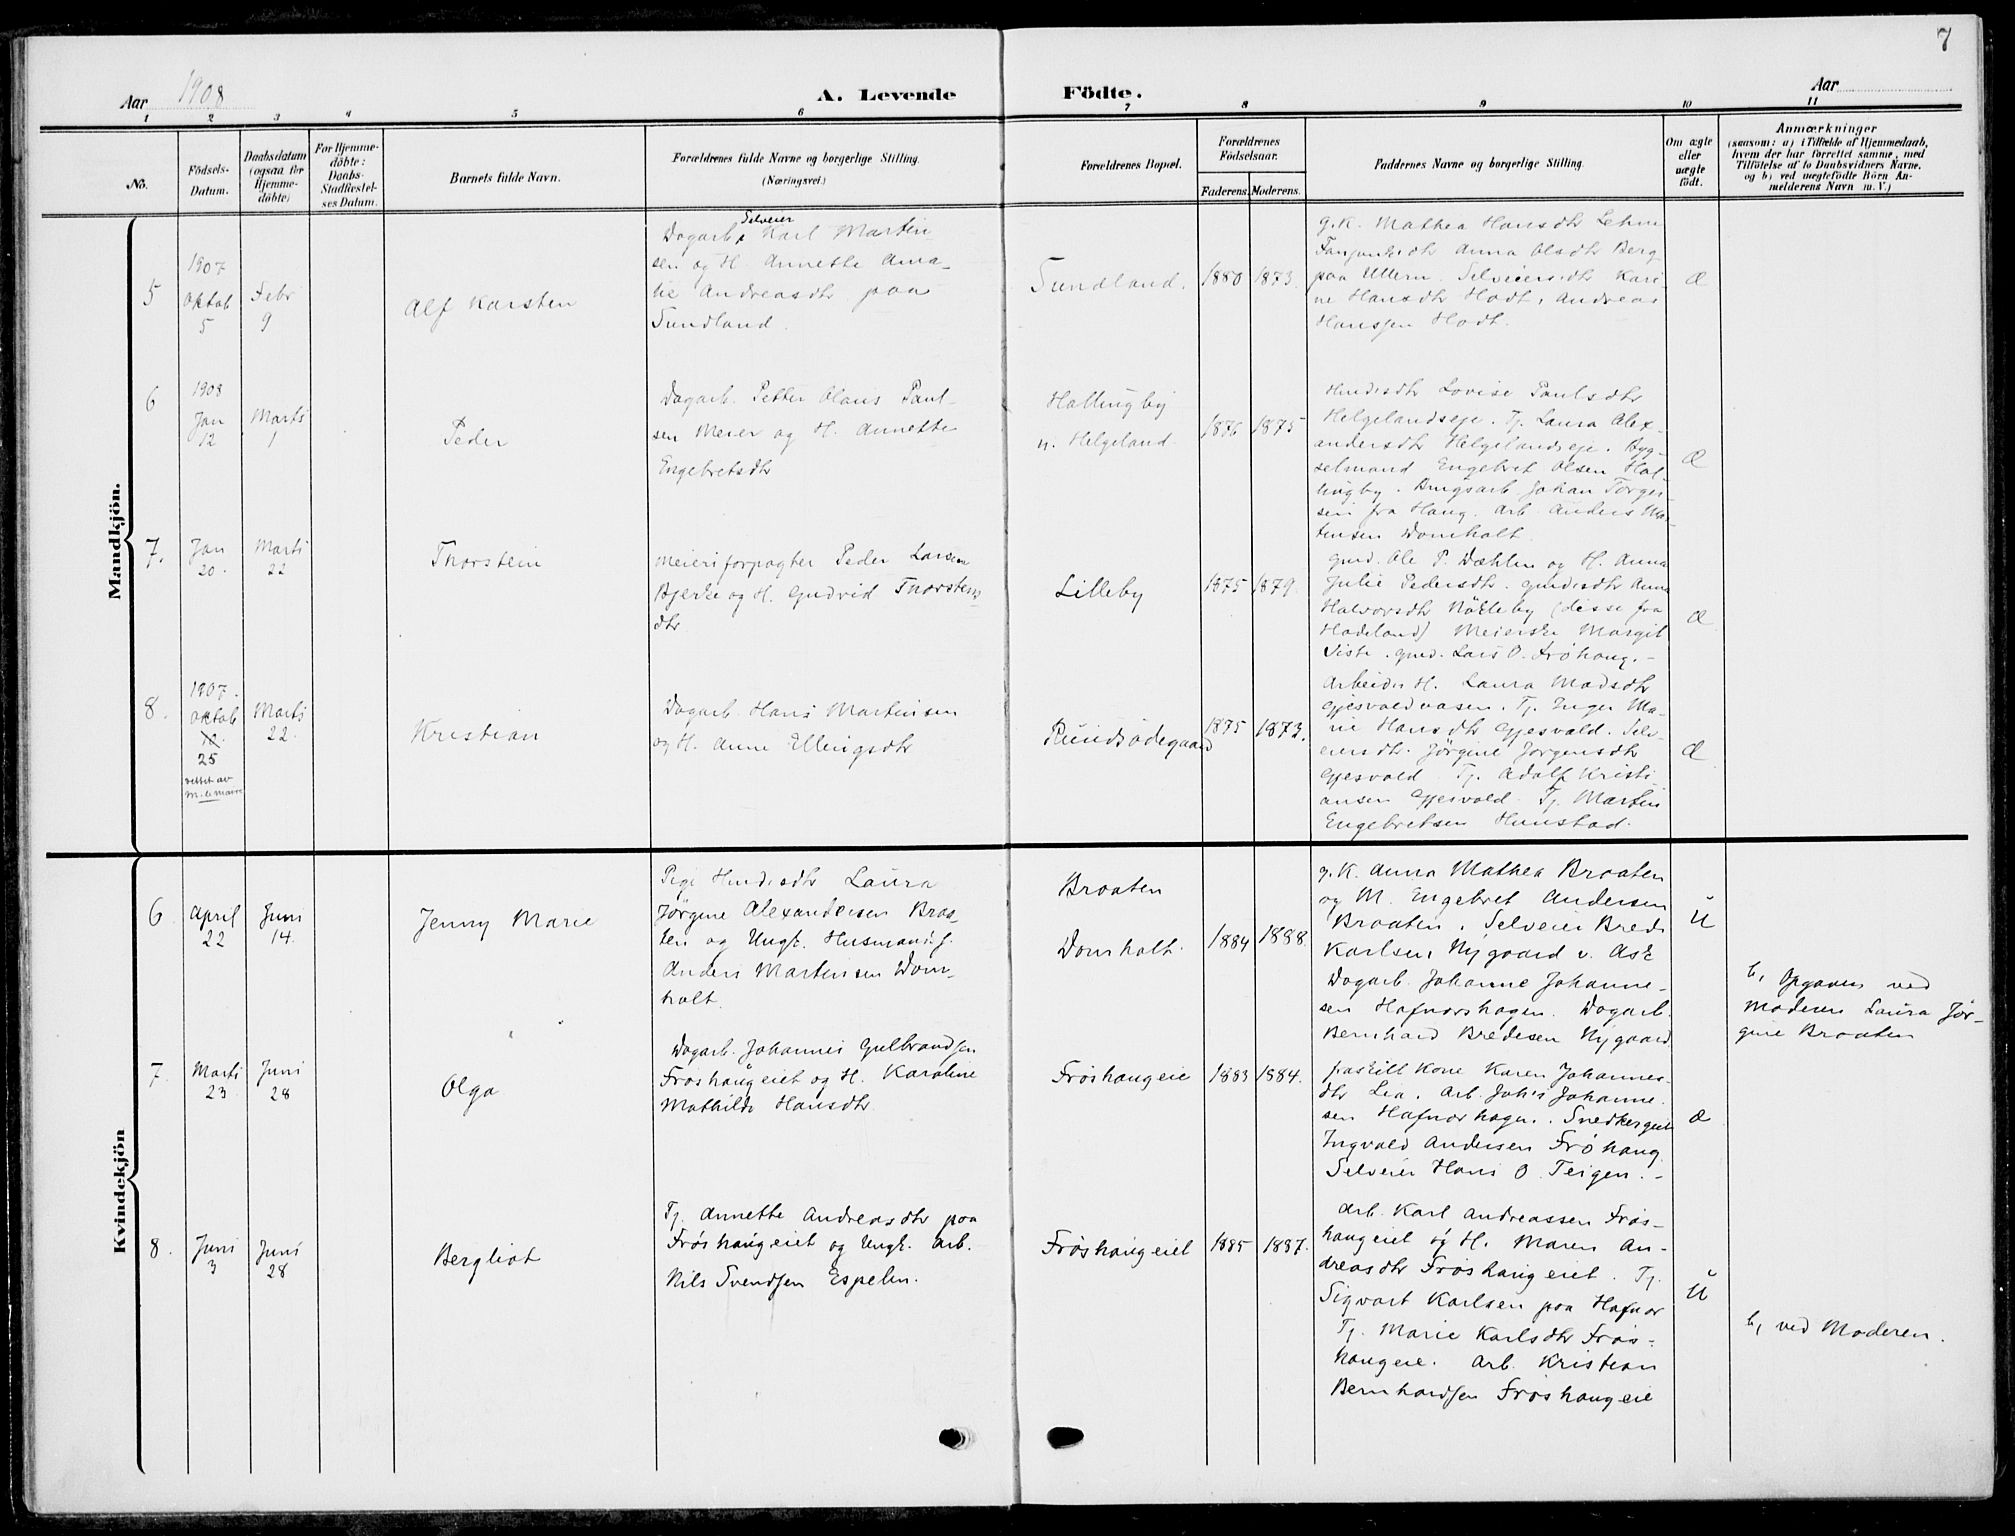 7
Aar 1908
A. Levende Födte.
Aar
1 2 3 4 5 6 7 8 9 10 11
No.
Födsels-Datum.
Daabsdatum (ogsaa for Hjemme-döbte)
For Hjemme-döbte: Daabs-Stadfæstel-ses Datum.
Barnets fulde Navn.
Forældrenes fulde Navne og borgerlige Stilling. (Næringsvei.)
Forældrenes Bopæl.
Forældrenes Födselsaar.
Faderens. Moderens.
Faddernes Navne og borgerlige Stilling.
Om ægte eller uægte födt.
Anmærkninger
(saasom: a) i Tilfælde af Hjemmedaab,
hvem der har forrettet samme, med
Tilföielse af to Daabsvidners Navne,
og b) ved uægtefödte Börn An-
melderens Navn m. V.)
Mandkjön.
5
1907
Oktob
5
Febr
9
Alf Karsten
Selveier
Dagarb. Karl Martin
sen og H. Annette Ama-
lie Andreasdtr paa
Sundland.
Sundland.
1880 1873.
g. K. Mathea Hansdtr Lehne
Anna Olsdtr Berg
paa Ullern. Selveiersdtr Kari-
ne Hansdtr Hodt, Andreas
Hanssen Hodt.
Æ
6
1908
Jan
12
Marts
1
Peder
Dagarb. Petter Olaus Paul-
sen Meier og H. Annette
Engebretsdtr
Hallingby
u. Helgeland
1876 1875
Husmdsdtr Lovise Paulsdtr
Helgelandseje. Tj. Laura Alex-
andersdtr Helgelandseje. Byg-
selmand Engebret Olsen Hal-
lingby. Brugsarb. Johan Torger-
sen fra Haug. Arb. Anders Mar-
tinsen Domholt.
Æ
7.
Jan
20.
Marts
22
Thorstein
Meieriforpagter Peder Larsen
Bjerke og H. Gudrid Thorstens
dtr
Lilleby
1875 1879.
Gmd. Ole P. Dæhlen og H. Anna
Julie Pedersdtr. Gmdsdtr Anna
Halvorsdtr Nökleby (disse fra
Hadeland) Meierske Margit
Siste. Gmd. Lars O. Fröhaug. -
Æ
8.
1907.
Oktob
12.
25
rettet av
M.
Marts
22.
Kristian
Dagarb. Hans Martinsen
og H. Anne Ellingsdtr
Rundsödegaard
1875 1873.
Arbeider H. Laura Madsdtr
Gjesvoldvasen. Tj. Inger Ma-
rie Hansdtr Gjesvold. Selv-
eiersdtr. Jörgine Jörgensdtr
Gjesvold. Tj. Adolf Kristi-
ansen Gjesvold. Tj. Martin
Engebretsen Hunstad.
Æ
Kvindekjön
6
April
22
Juni
14.
Jenny Marie
Pige Husmdsdtr Laura
Jörgine Alexandersen Braa-
ten og Ungk. Husmands.
Anders Martinsen Dom-
holt.
Braaten
Domholt.
1884 1888.
g. K. Anna Mathea Braaten
og M. Engebret Andersen
Braaten. Selveier Brede
Karlsen Nygaard v. Ask
Dagarb. Johanne Johanne-
sen Hafnorshagen. Dagarb.
Bernhard Bredesen Nygaard
U
b, Opgaven ved
Moderen Laura Jör-
gine Braaten
7.
Marts
23
Juni
28
Olga
Dagarb. Johannes Gulbrandsen
Fröshaugeiet og H. Karoline
Mathilde Hansdtr.
Fröshaugeie
1883 1884.
fraskilt Kone Karen Johannes-
dtr Lia. Arb. Johs Johanne-
sen Hafnorhagen. Snedkersvend
Ingvald Andersen Fröhaug.
Selveier Hans O. Teigen. -
Æ
8.
Juni
3
Juni
28
Bergliot
Tj. Annette Andreasdtr paa
Fröshaugeiet og Ungk. Arb.
Nils Svendsen Espelin.
Fröshaugeiet
1885 1887.
Arb. Karl Andreassen Frös-
haugeiet og H. Maren An-
dreasdtr Fröshaugeiet. Tj.
Sigvart Karlsen paa Hafnor
Tj. Marie Karlsdtr Frös-
haugeie. Arb. Kristian
Bernhardsen Fröshaugeie
U
b, ved Moderen.